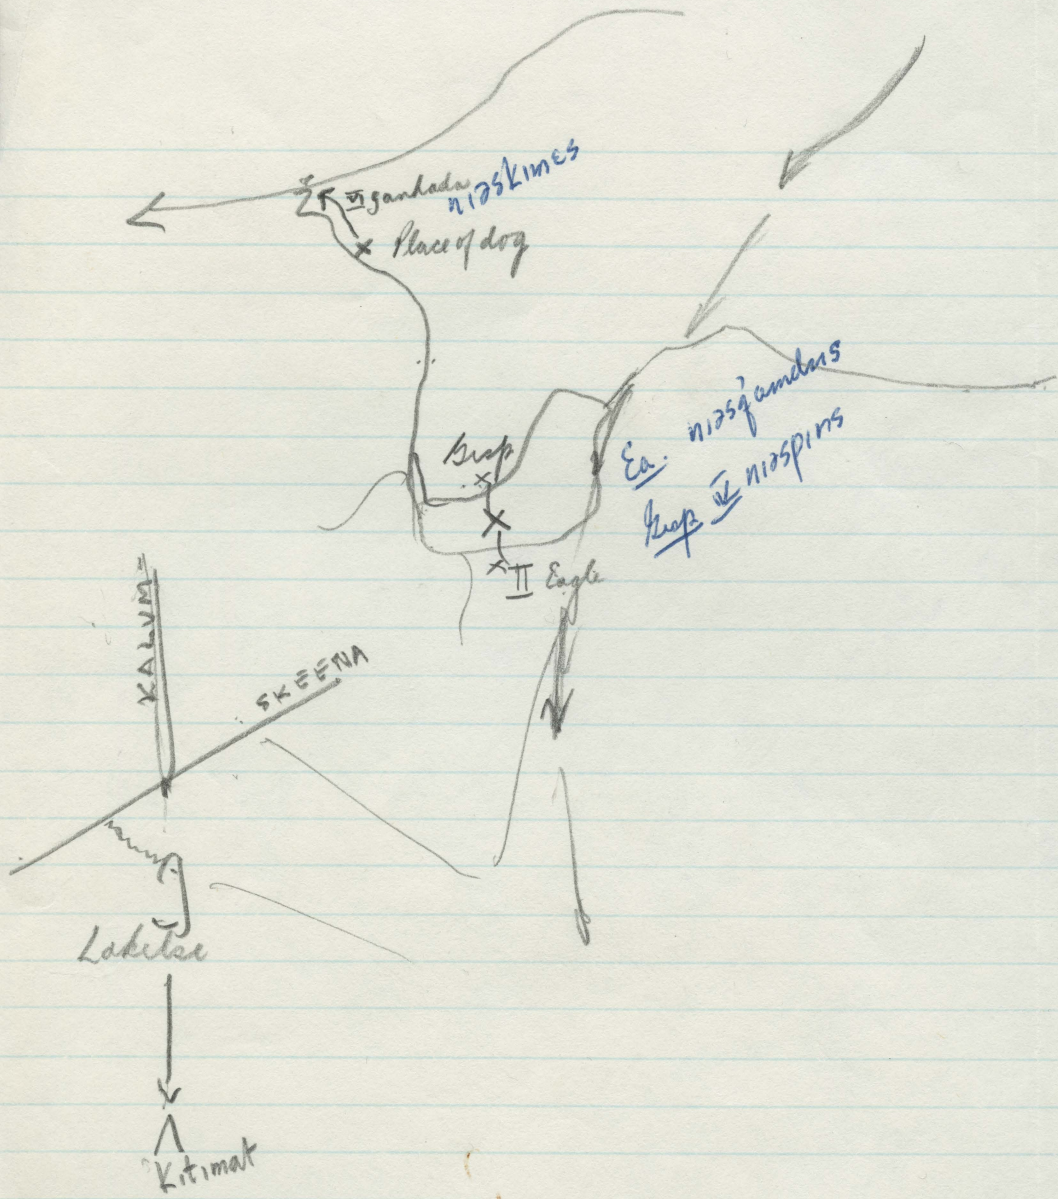 ganhada niəskimɛs
Place of dog
Gisp
Ea. niəsq'amdzis
Gisp IV niəspins
II Eagle
KALUM
SKEENA
Lakelse
Kitimat